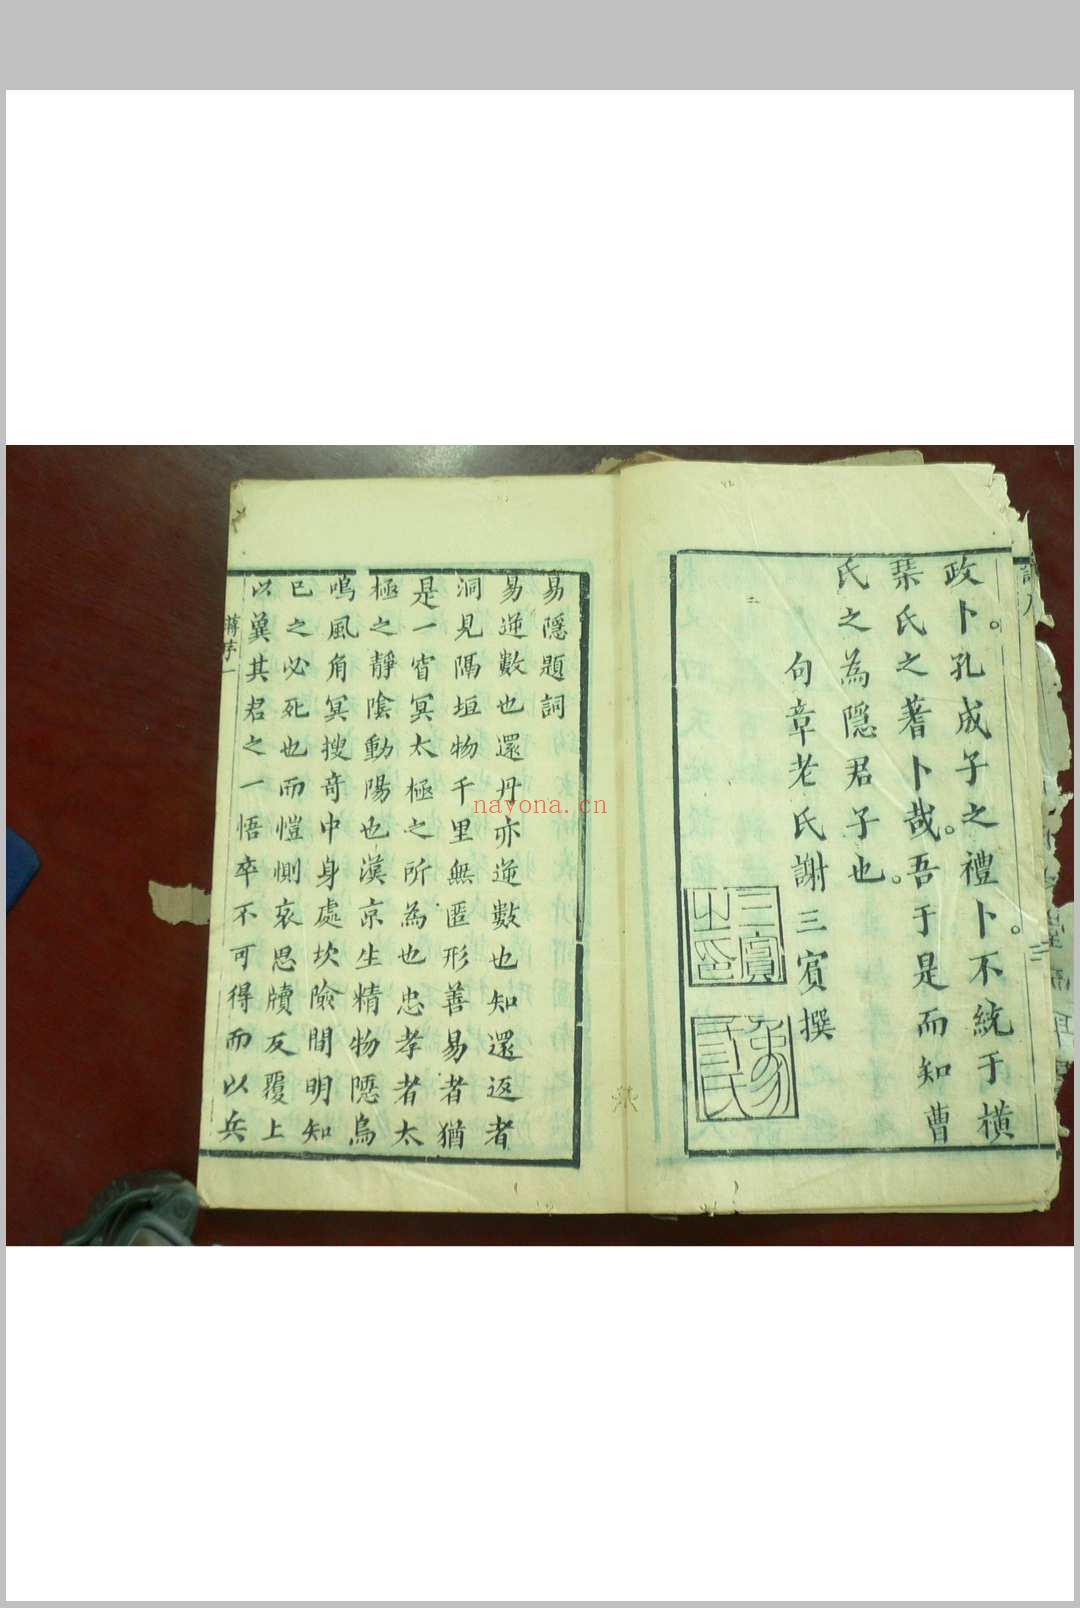 政卜。孔成子之禮卜。不統于橫
棊氏之蓍卜哉。吾于是而知曹
氏之為隱君子也。
句章老氏謝三賓撰
三賓之印
易隱題詞
易逆數也還丹亦逆數也知還返者
洞見隔垣物千里無匿形善易者猶
是一窅冥太極之所為也忠孝者太
極之靜陰動陽也漢京生精物隱烏
鳴風角冥搜奇中身處坎險間明知
已之必死也而愷惻哀思牘反覆上
以冀其君之一悟卒不可得而以兵
蔣序 一
nayona.cn